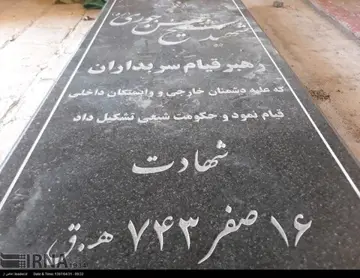 شهید شیخ حسن جوری
رهبر قیام سربداران
که علیه دشمنان خارجی و وابستگان داخلی
قیام نمود و حکومت شیعی تشکیل داد
شهادت
۱۶ صفر ۷۴۳ ه.ق
IRNA